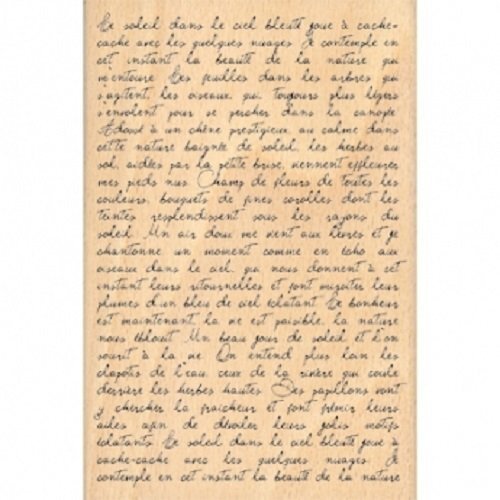 Le soleil dans le ciel bleuté joue à cache-
cache avec les quelques nuages. Je contemple en
cet instant la beauté de la nature qui
m'entoure. Les feuilles dans les arbres qui
s'agitent, les oiseaux, qui, toujours plus légers
s'envolent pour se percher dans la canopée.
Adossé à un chêne prestigieux, au calme dans
cette nature baignée de soleil, les herbes au
sol, aidées par la petite brise, viennent effleurer
mes pieds nus. Champ de fleurs de toutes les
couleurs, bouquets de fines corolles dont les
teintes resplendissent sous les rayons du
soleil. Un air doux me vient aux lèvres et je
chantonne un moment comme en écho aux
oiseaux dans le ciel, qui nous donnent à cet
instant leurs ritournelles et font miroiter leurs
plumes d'un bleu de ciel éclatant. Le bonheur
est maintenant, la vie est paisible, la nature
nous éblouit. Un beau jour de soleil et l'on
sourit à la vie. On entend plus loin les
clapotis de l'eau, ceux de la rivière qui coule
derrière les herbes hautes. Des papillons vont
y chercher la fraîcheur et font frémir leurs
ailes afin de dévoiler leurs jolis motifs
éclatants. Le soleil dans le ciel bleuté joue à
cache-cache avec les quelques nuages. Je
contemple en cet instant la beauté de la nature